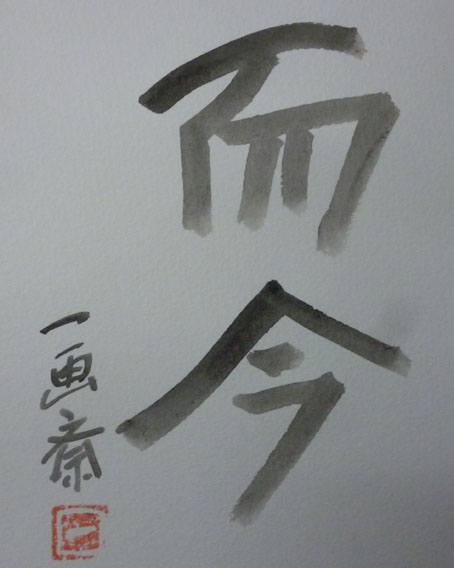 而今
一画斎